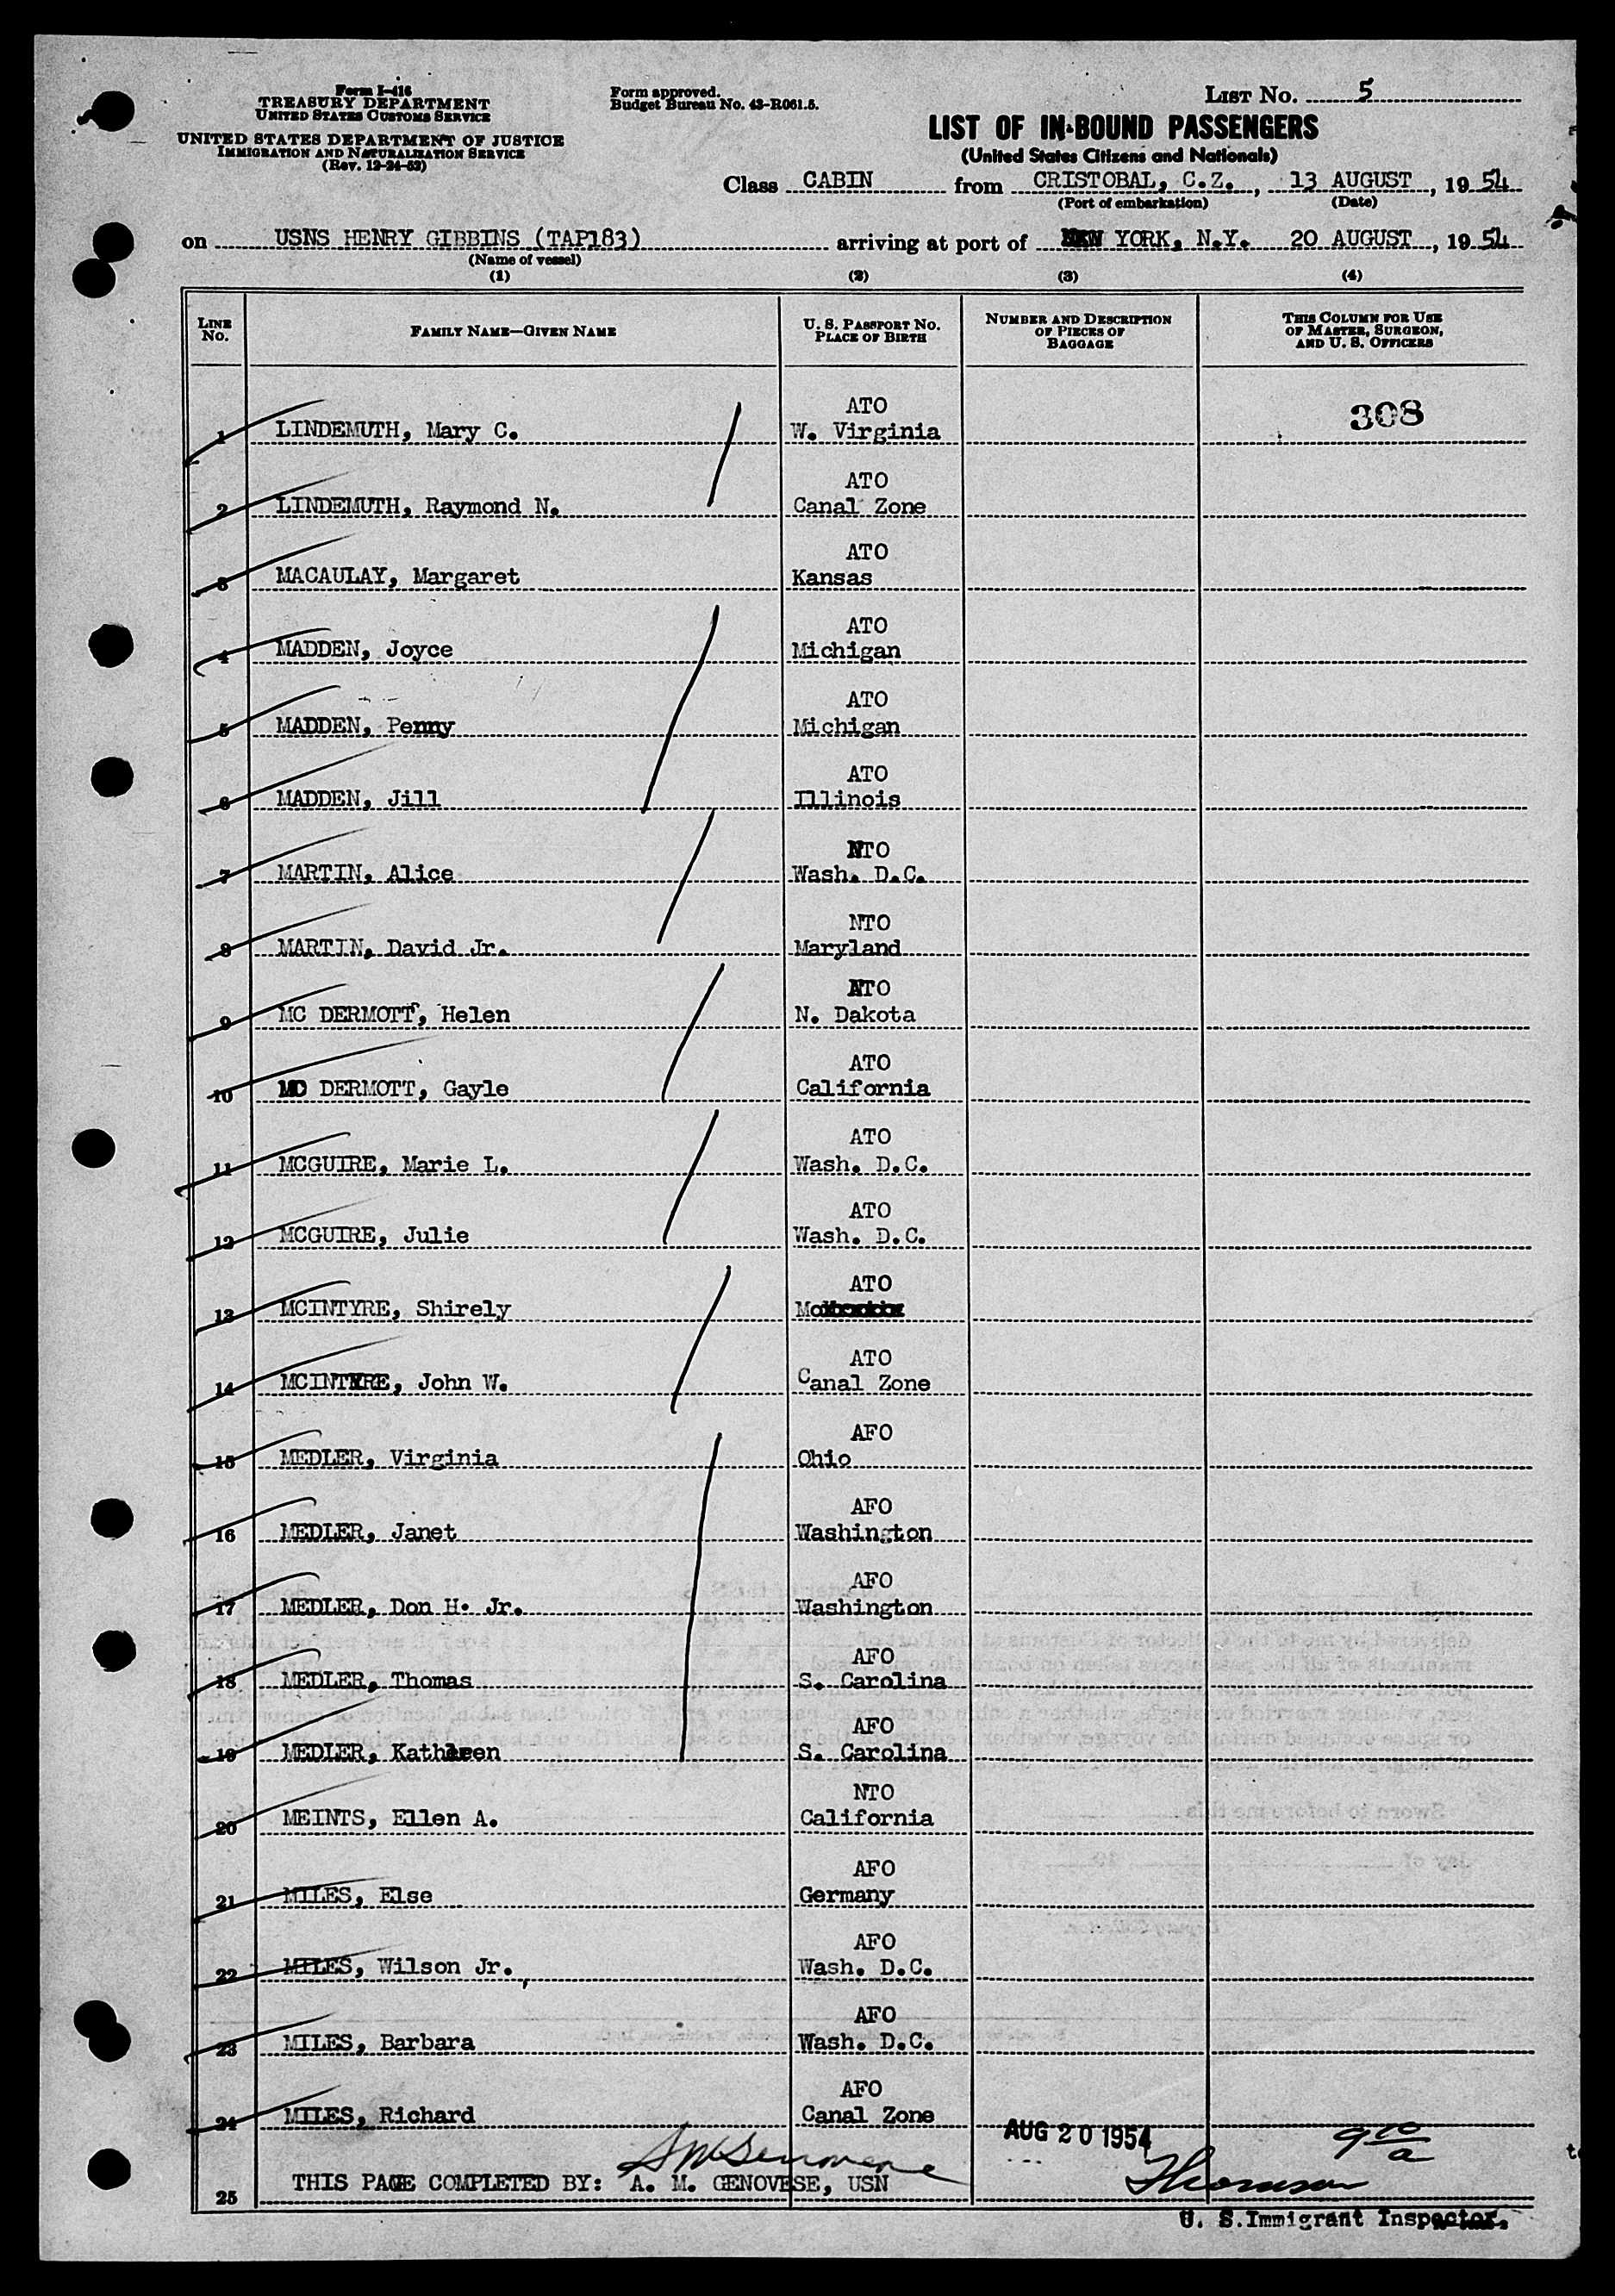 Form I-416
TREASURY DEPARTMENT
UNITED STATES CUSTOMS SERVICE
UNITED STATES DEPARTMENT OF JUSTICE
IMMIGRATION AND NATURALIZATION SERVICE
(Rev. 12-24-53)
Form approved.
Budget Bureau No. 43-R061.5.
LIST NO. 5
LIST OF IN-BOUND PASSENGERS
(United States Citizens and Nationals)
Class CABIN from CRISTOBAL, C.Z., 13 AUGUST, 1954
(Port of embarkation) (Date)
on USNS HENRY GIBBINS (TAP183) arriving at port of NEW YORK, N.Y. 20 AUGUST, 1954
(Name of vessel)
(1) (2) (3) (4)
LINE NO.
FAMILY NAME—GIVEN NAME
U. S. PASSPORT NO.
PLACE OF BIRTH
NUMBER AND DESCRIPTION
OF PIECES OF
BAGGAGE
THIS COLUMN FOR USE
OF MASTER, SURGEON,
AND U. S. OFFICERS
ATO 308
1 LINDEMUTH, Mary C. W. Virginia
ATO
2 LINDEMUTH, Raymond N. Canal Zone
ATO
3 MACAULAY, Margaret Kansas
ATO
4 MADDEN, Joyce Michigan
ATO
5 MADDEN, Penny Michigan
ATO
6 MADDEN, Jill Illinois
NTO
7 MARTIN, Alice Wash. D.C.
NTO
8 MARTIN, David Jr. Maryland
ATO
9 MC DERMOTT, Helen N. Dakota
ATO
10 MC DERMOTT, Gayle California
ATO
11 MCGUIRE, Marie L. Wash. D.C.
ATO
12 MCGUIRE, Julie Wash. D.C.
ATO
13 MCINTYRE, Shirely
ATO
14 MCINTYRE, John W. Canal Zone
AFO
15 MEDLER, Virginia Ohio
AFO
16 MEDLER, Janet Washington
AFO
17 MEDLER, Don H. Jr. Washington
AFO
18 MEDLER, Thomas S. Carolina
AFO
19 MEDLER, Kathleen S. Carolina
NTO
20 MEINTS, Ellen A. California
AFO
21 MILES, Else Germany
AFO
22 MILES, Wilson Jr. Wash. D.C.
AFO
23 MILES, Barbara Wash. D.C.
AFO
24 MILES, Richard Canal Zone
AUG 20 1954
AM Genovese
25 THIS PAGE COMPLETED BY: A. M. GENOVESE, USN
Thomson
U. S. Immigrant Inspector.